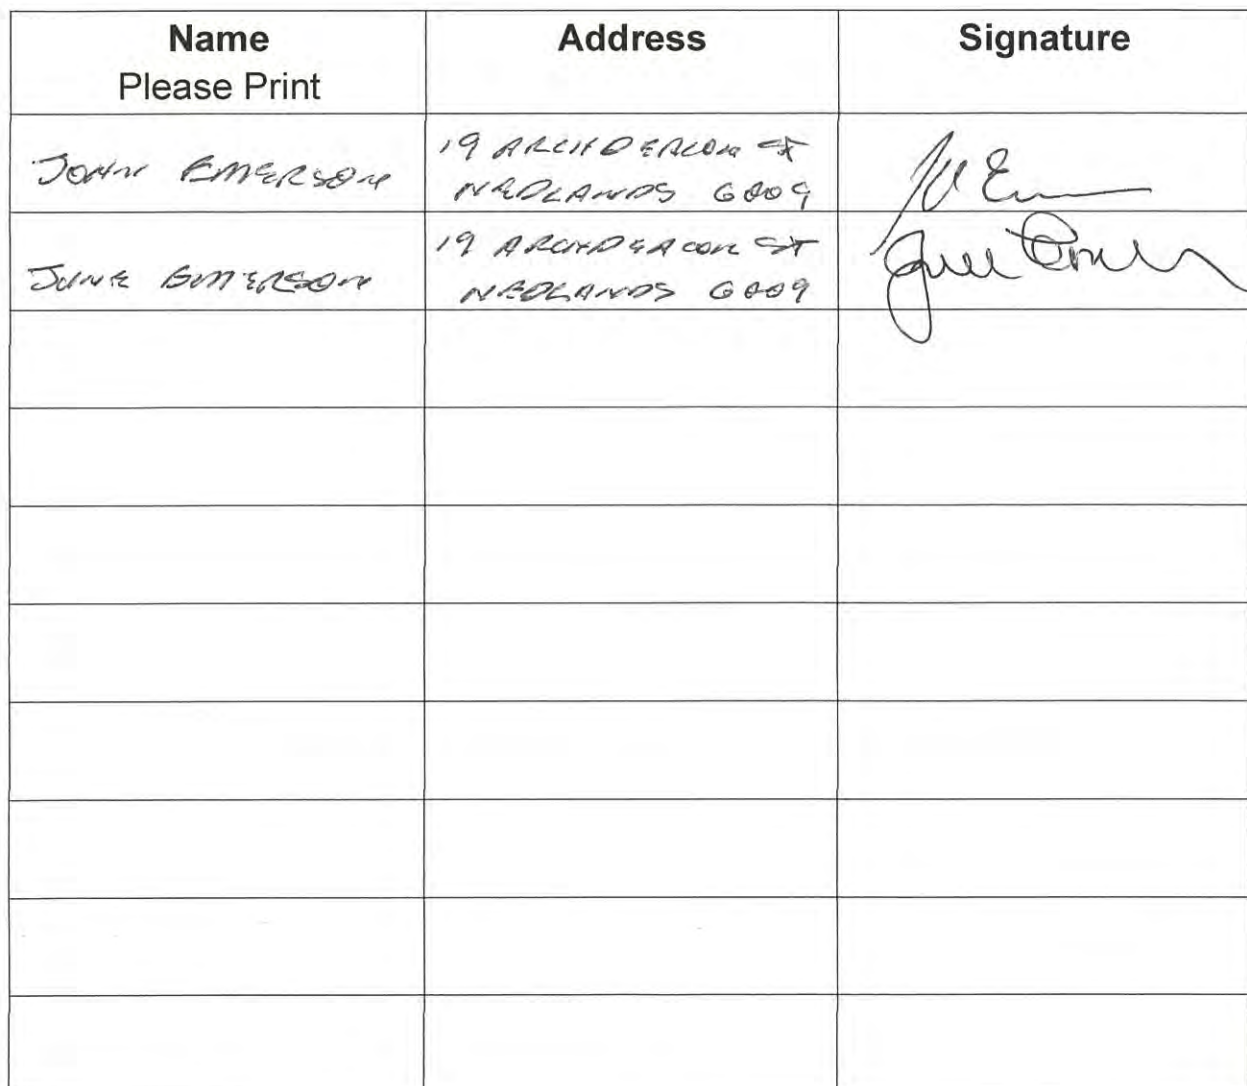 Name
Please Print
Address
Signature
JOHN EMERSON
19 ARCHDEACON ST
NEDLANDS 6009
JUNE EMERSON
19 ARCHDEACON ST
NEDLANDS 6009